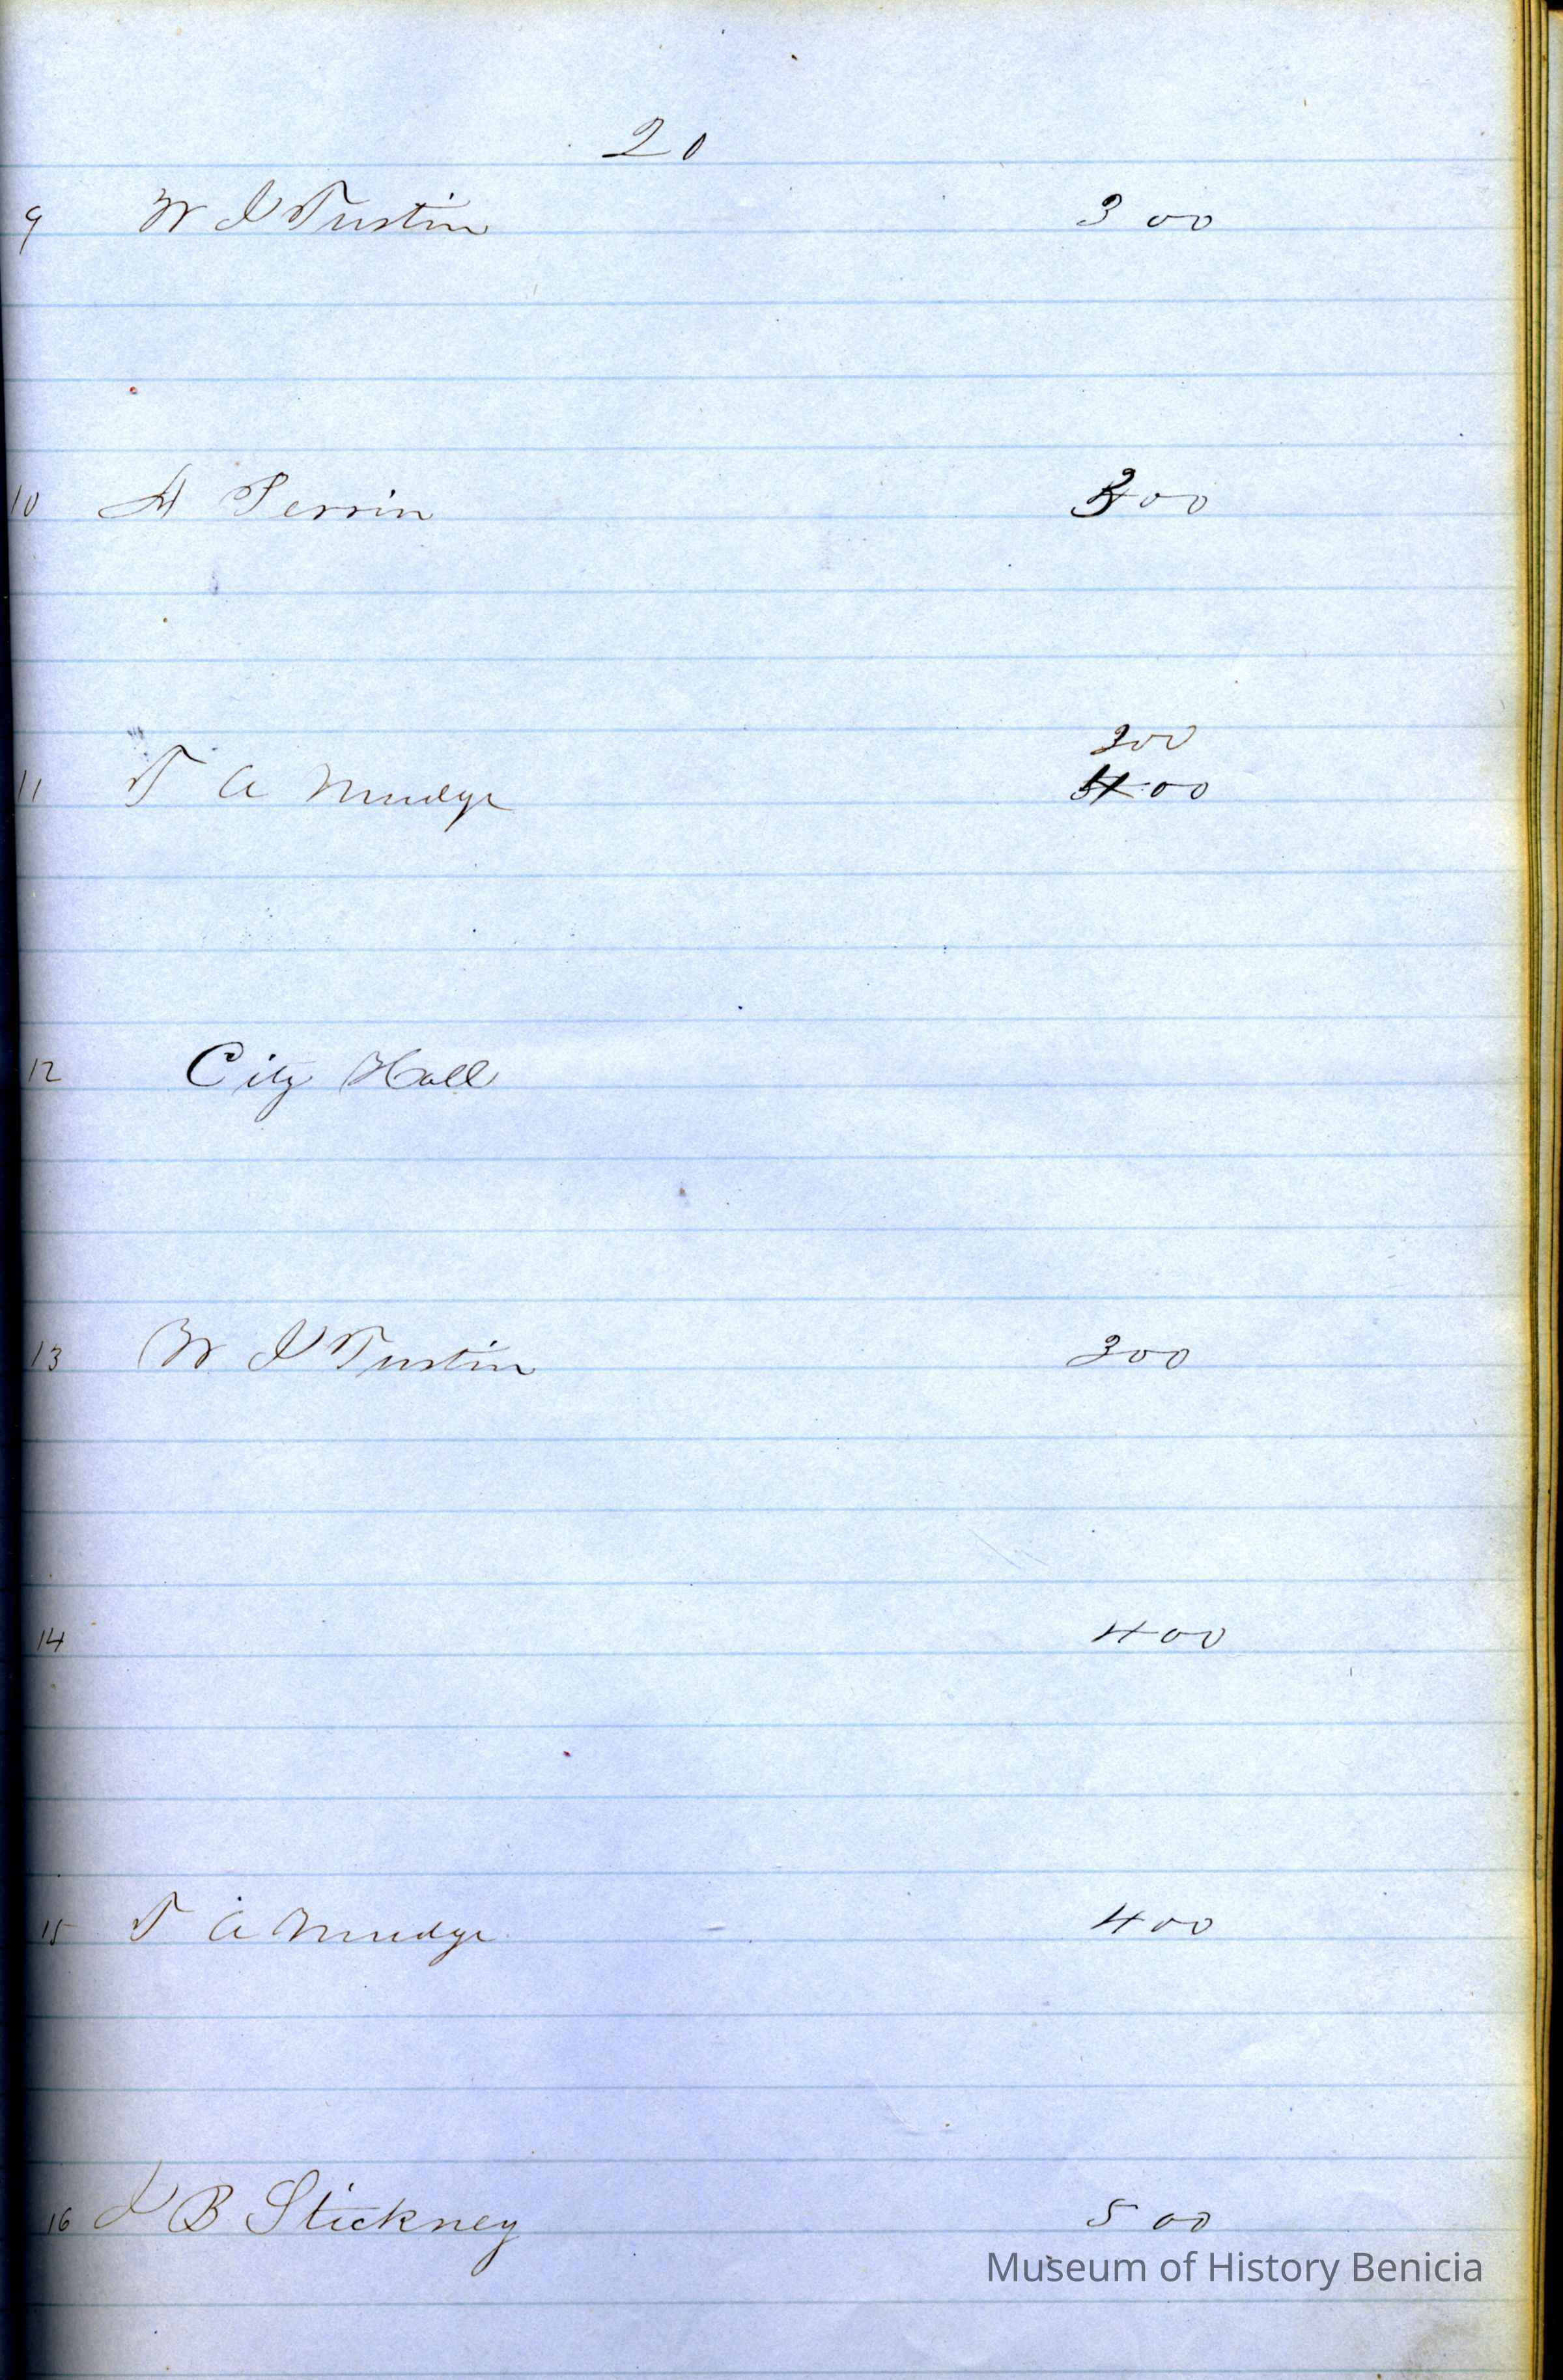 20
9 W I Tustin 300
10 H Perrin 300
300
11 T A Mudge 400
12 City Hall
13 W I Tustin 300
14 400
15 T A Mudge 400
16 I B Stickney 500
Museum of History Benicia